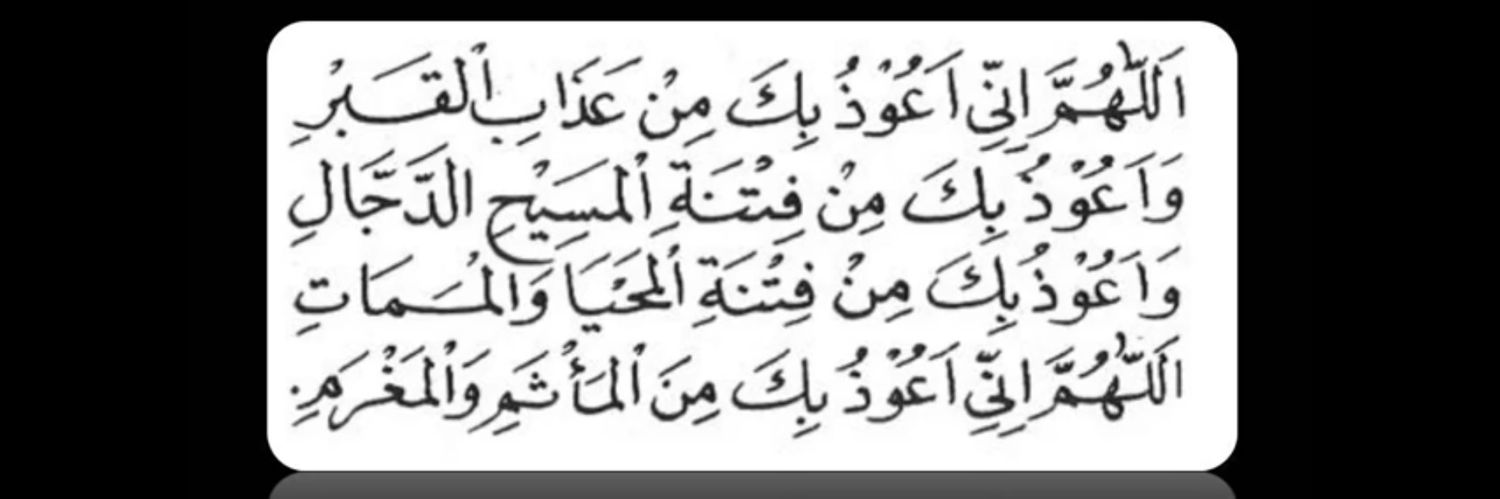 اَللّٰهُمَّ اِنِّيْ اَعُوْذُ بِكَ مِنْ عَذَابِ الْقَـبْرِ
وَاَعُوْذُ بِكَ مِنْ فِتْنَةِ الْمَسِيْحِ الدَّجَّالِ
وَاَعُوْذُ بِكَ مِنْ فِتْنَةِ الْمَحْيَا وَالْمَمَاتِ
اَللّٰهُمَّ اِنِّيْ اَعُوْذُ بِكَ مِنَ الْمَأْثَمِ وَالْمَغْرَمِ.